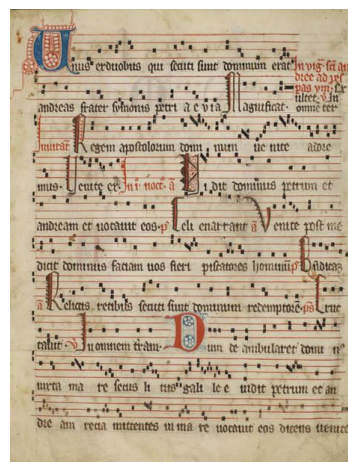 Unus ex duobus qui secuti sunt dominum erat
andreas frater symonis petri a e v i a Magnificat.
Regem apostolorum domi num ue nite adore
mus. Venite ex. In i noct. a Vi dit dominus petrum et
andream et uocauit eos. ps Celi enarrant a Venite post me
dicit dominus faciam uos fieri piscatores hominum ps Bñdicam
a Relictis retibus secuti sunt dominum redemptorē ps Eruc
tauit. V In omnem tram. Dum de ambularet domi n
iuxta ma re secus li tus gali le e uidit petrum et an
dre am recia mittentes in ma re uocauit eos dicens uenite